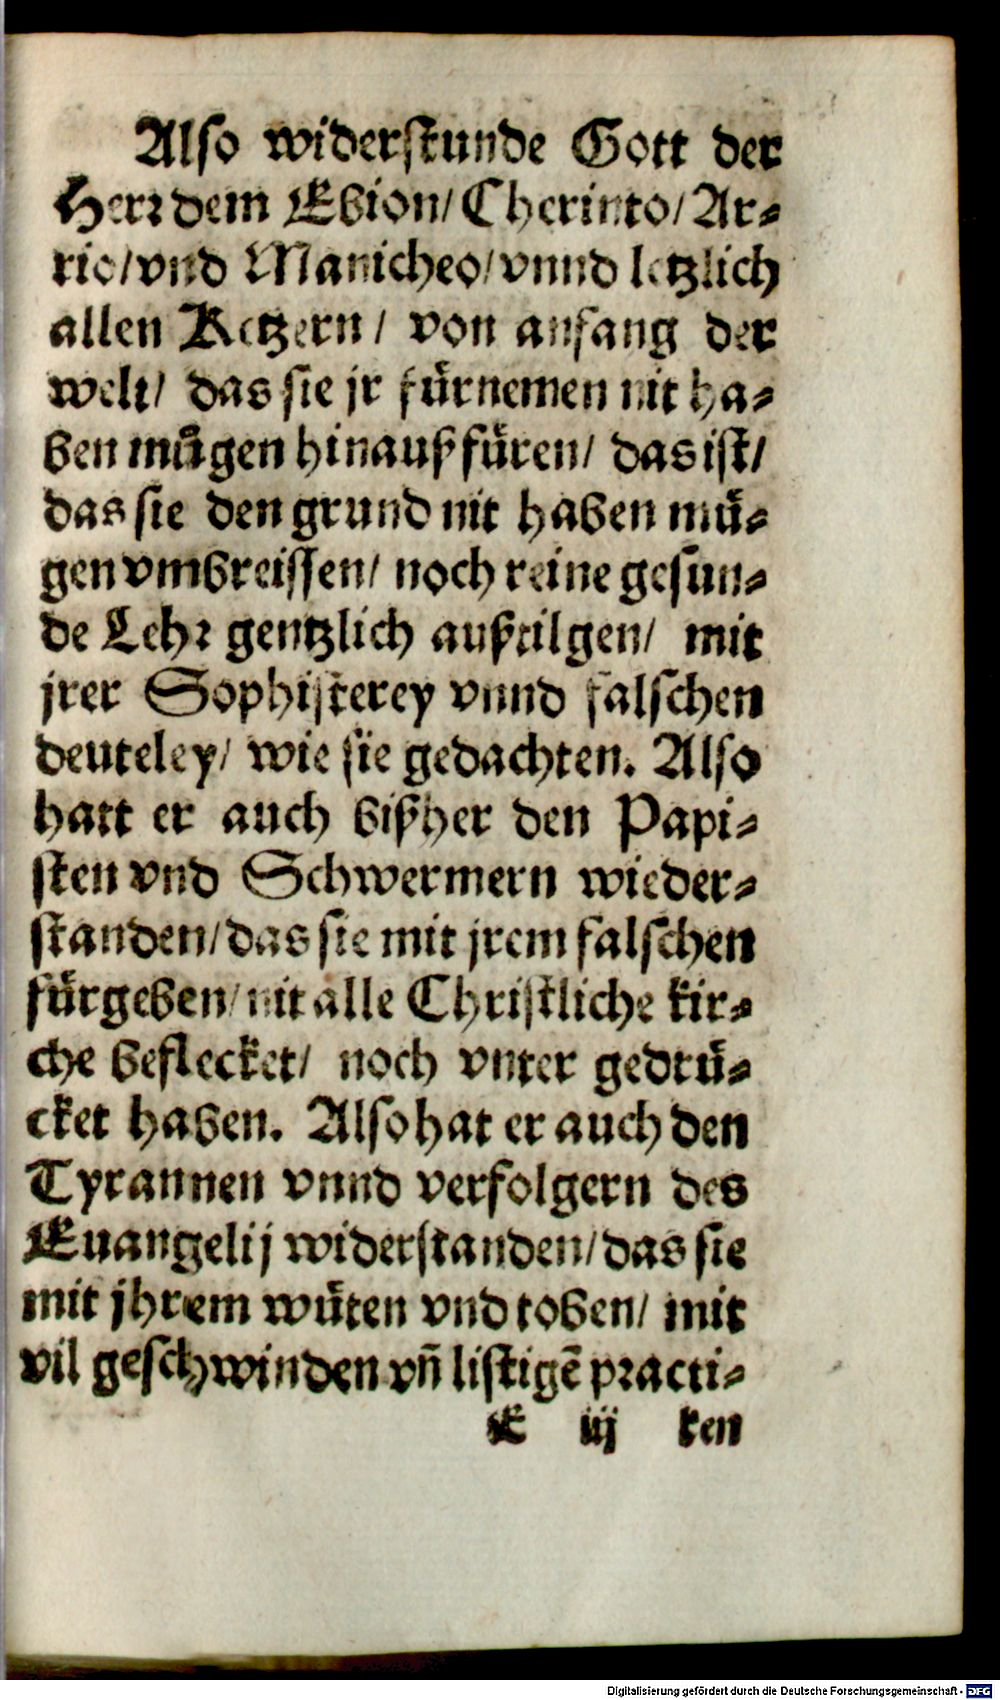 Also widerstunde Gott der
Herr dem Ebion/ Cherinto/ Ar-
rio/ vnd Manicheo/ vnnd letzlich
allen Ketzern/ von anfang der
welt/ das sie jr fürnemen nit ha-
ben mügen hinauß füren/ das ist/
das sie den grund nit haben mü-
gen vmbreissen/ noch reine gesun-
de Lehr gentzlich außtilgen/ mit
jrer Sophisterey vnnd falschen
deuteley/ wie sie gedachten. Also
hatt er auch bißher den Papi-
sten vnd Schwermern wieder-
standen/ das sie mit jrem falschen
fürgeben/ nit alle Christliche kir-
che beflecket/ noch vnter gedrü-
cket haben. Also hat er auch den
Tyrannen vnnd verfolgern des
Euangelij widerstanden/ das sie
mit jhrem wüten vnd toben/ mit
vil geschwinden vñ listigē practi-
E iij ken
Digitalisierung gefördert durch die Deutsche Forschungsgemeinschaft - DFG